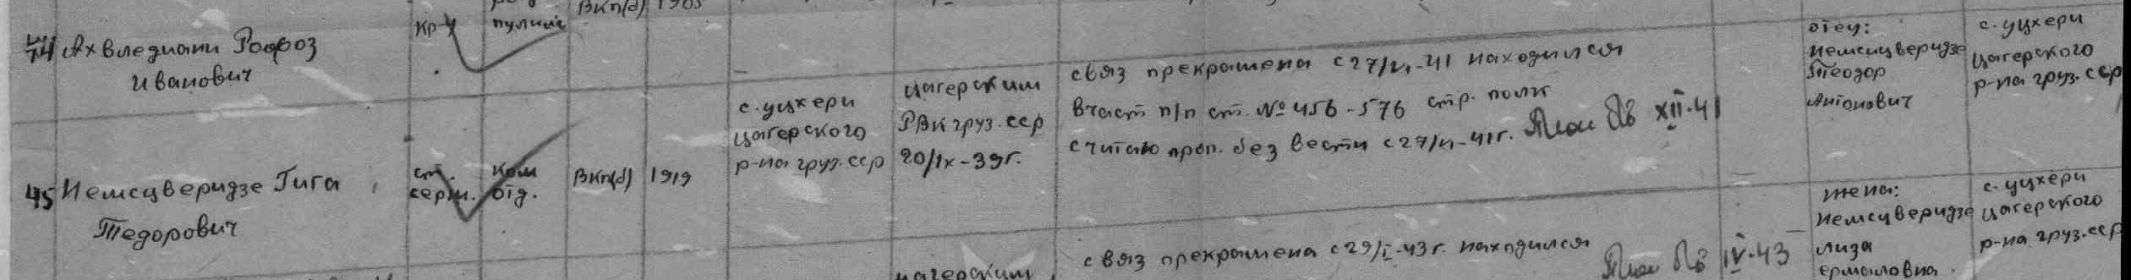 ВКП(б) 1905
44 Ахвледиани Рафоз
Иванович
кр-ц пулимć
45 Немсцверидзе Гига
Тедорович
ст.
серж.
ком
отд.
ВКП(б) 1919
с. уцхери
цагерского
р-на груз. сср
цагерским
РВК груз. сср
20/IX-39г.
связ прекрашена с 27/VI-41 находился
вчаст п/п ст. № 456-576 стр. полк
считаю проп. без вести с 27/VI-41г.
XII-41
отец:
Немсцверидзе
Теодор
Антонович
с. уцхери
цагерского
р-на груз. сср
цагерским
связ прекрашена с 29/I-43г. находился
IV-43
жена:
Немсцверидзе
лиза
ермаловна
с. уцхери
цагерского
р-на груз. сср